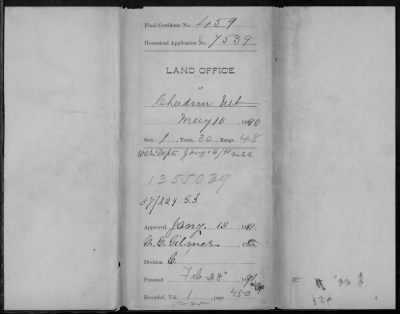 Final Certificate No. 459
Homestead Application No. 7539
LAND OFFICE
Chadron Neb
May 10 1890
Sect. 1, Town. 30, Range 48
1355039
Approved Jany. 13 1891.
M. C. Gilmer
Division C.
Patented Feb 28
Recorded, Vol. 1, page 450